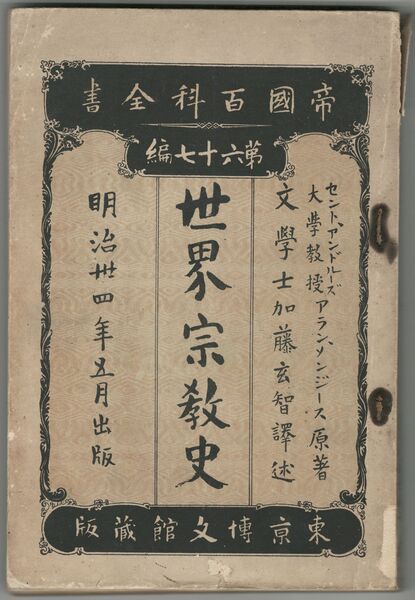 帝國百科全書
第六十七編
セント、アンドルーズ
大學教授アラン、メンジース原著
文學士加藤玄智譯述
世界宗教史
明治卅四年五月出版
東京博文館藏版